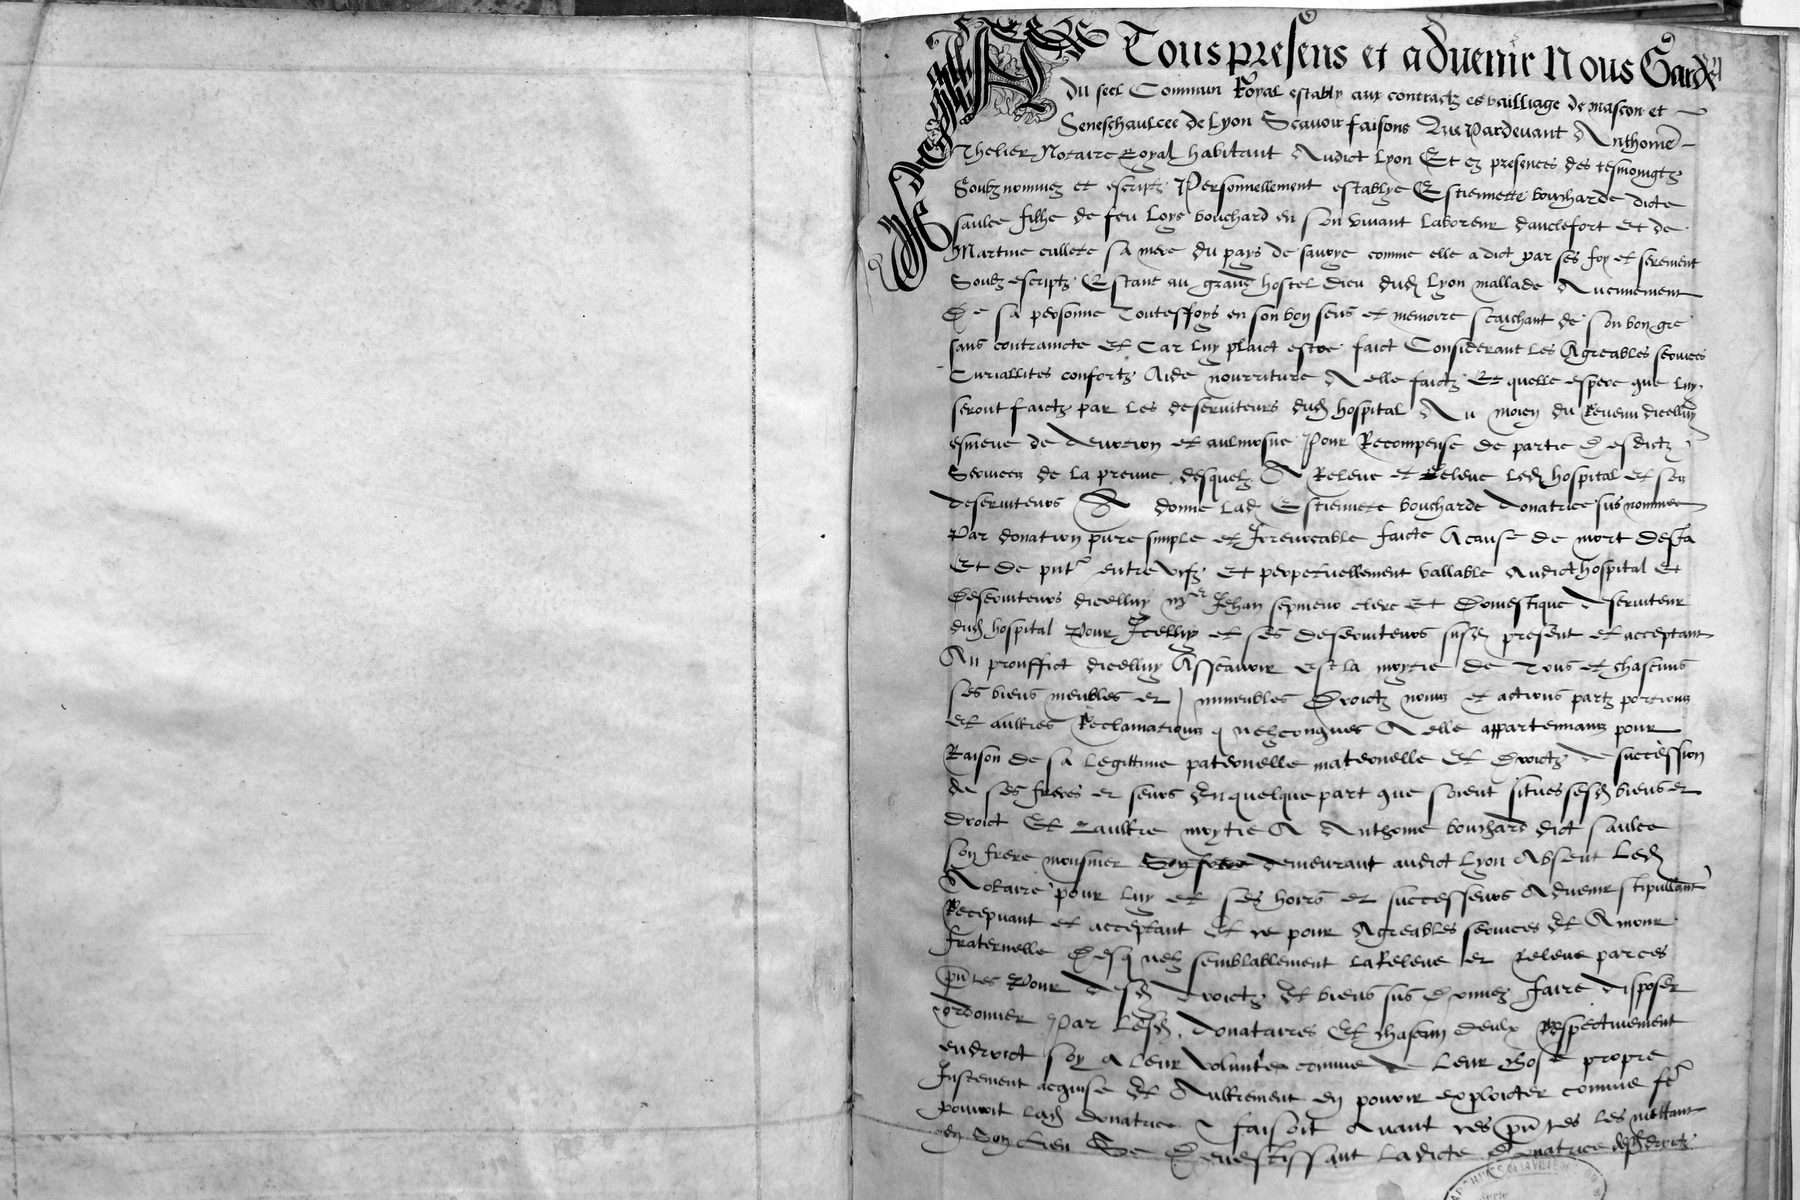 A Tous presens et advenir Nous Garde
du seel Commun Royal estably aux contractz es bailliage de mascon et
Seneschaulcee de Lyon Scavoir faisons Que Pardevant Anthoine
Thelier Notaire Royal habitant Audict Lyon Et en presences des tesmoingtz
Soubznommez et escriptz Personnellement establye Estiennette boucharde dicte
saulce filhe de feu Loys bouchard en son vivant Laboreur danclefort et de
Martine cullete sa mere du pays de savoye comme elle a dict par ses foy et serement
Soubzescriptz Estant au grand hostel dieu dud Lyon mallade Aucunement
De sa personne Toutesfoys en son bon sens et memoire scaichant de son bon gre
sans contraincte et Car luy plaict estre faict Considerant les Agreables services
Curiallites confortz Aide nourriture A elle faictz Et quelle espere que luy
seront faictz par les deserviteurs dud hospital Au moien du Revenu dicelluy
esmeue de devotion et aulmosne Pour Recompense de partie Desdictz
Services de la preuve desquelz A Releve et Releve led hospital et ses
deserviteurs A donne lad Estiennete boucharde donatrice susnommee
Par donation pure simple et Irrevocable faicte A cause de mort
Et de pnt entre vifz et perpetuellement vallable Audict hospital et
Deserviteurs dicelluy mr Jehan clerc et Domestique deserviteur
dud hospital Pour Icelluy et ses deserviteurs susd present et acceptant
Au prouffict dicelluy Asscavoir est la moytie de Tous et chascuns
ses biens meubles et immeubles Droictz noms et actions partz portions
et aultres Reclamations quelzconques A elle appartenans pour
Raison de sa legittime paternelle maternelle et Droictz de succession
de ses freres et seurs En quelque part que soient situes sesd biens et
droict Et Laultre moytie A Anthoine bouchard dict saulce
son frere monsnier demeurant audict Lyon Absent Led
Notaire pour luy et ses hoirs et successeurs Advenir stipullant
Recepvant et acceptant Et ce pour Agreables services et Amour
fraternelle Desquelz semblablement La Releve et Releve par ces
pntes Pour desd droictz et biens sus Donnez faire disposer
ordonner Par Lesd donataires Et chascun deulx Respectivement
endroict soy a leur volunte comme de leur chose propre
Justement acquise et Aultrement en pouvoir exploicter comme
pouvoit lad donatrice et faisoit avant ces pntes les mettant
en son lieu Se Devestissant ladicte donatrice desd droictz